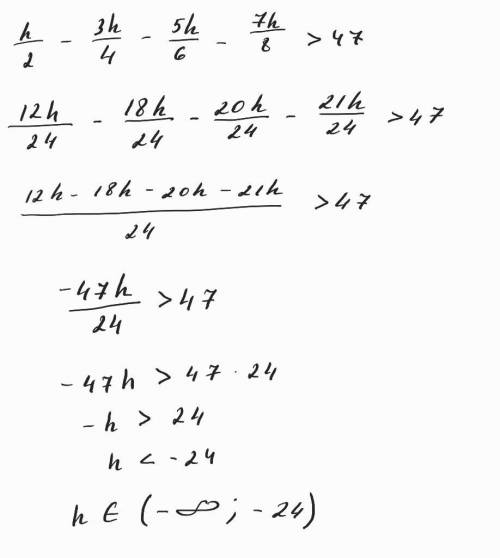 h/2 - 3h/4 - 5h/6 - 7h/8 > 47
12h/24 - 18h/24 - 20h/24 - 21h/24 > 47
(12h - 18h - 20h - 21h)/24 > 47
-47h/24 > 47
-47h > 47 · 24
-h > 24
h < -24
h ∈ (-∞; -24)